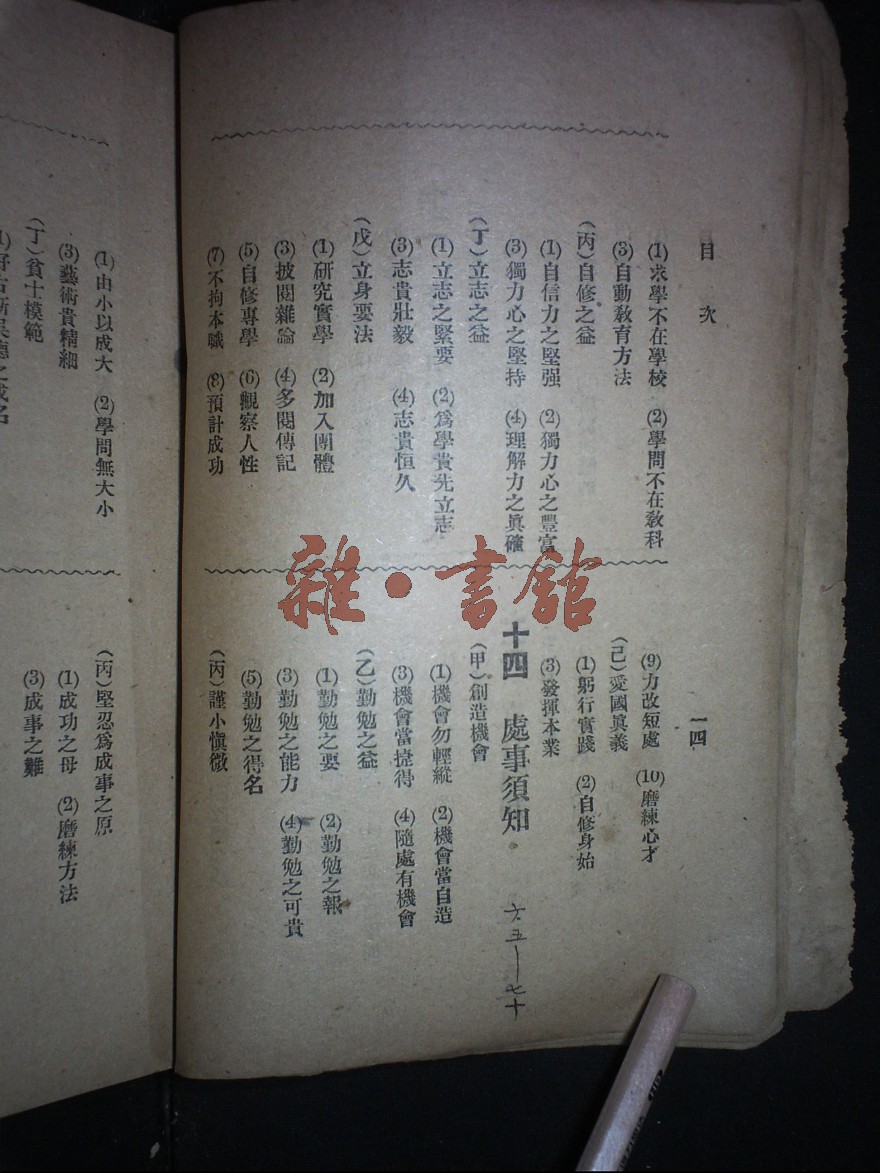 目 次
一四
(1)求學不在學校 (2)學問不在教科
(3)自動教育方法
(丙)自修之益
(1)自信力之堅强 (2)獨力心之豐富
(3)獨力心之堅持 (4)理解力之眞確
(丁)立志之益
(1)立志之緊要 (2)爲學貴先立志
(3)志貴壯毅 (4)志貴恒久
(戊)立身要法
(1)研究實學 (2)加入團體
(3)披閱雜論 (4)多閱傳記
(5)自修專學 (6)觀察人性
(7)不拘本職 (8)預計成功
(9)力改短處 (10)磨練心才
(己)愛國眞義
(1)躬行實踐 (2)自修身始
(3)發揮本業
十四 處事須知
六五—七十
(甲)創造機會
(1)機會勿輕縱 (2)機會當自造
(3)機會當捷得 (4)隨處有機會
(乙)勤勉之益
(1)勤勉之要 (2)勤勉之報
(3)勤勉之能力 (4)勤勉之可貴
(5)勤勉之得名
(丙)謹小愼微
(1)由小以成大 (2)學問無大小
(3)藝術貴精細
(丁)貧士模範
(丙)堅忍爲成事之原
(1)成功之母 (2)磨練方法
(3)成事之難
雜·書館